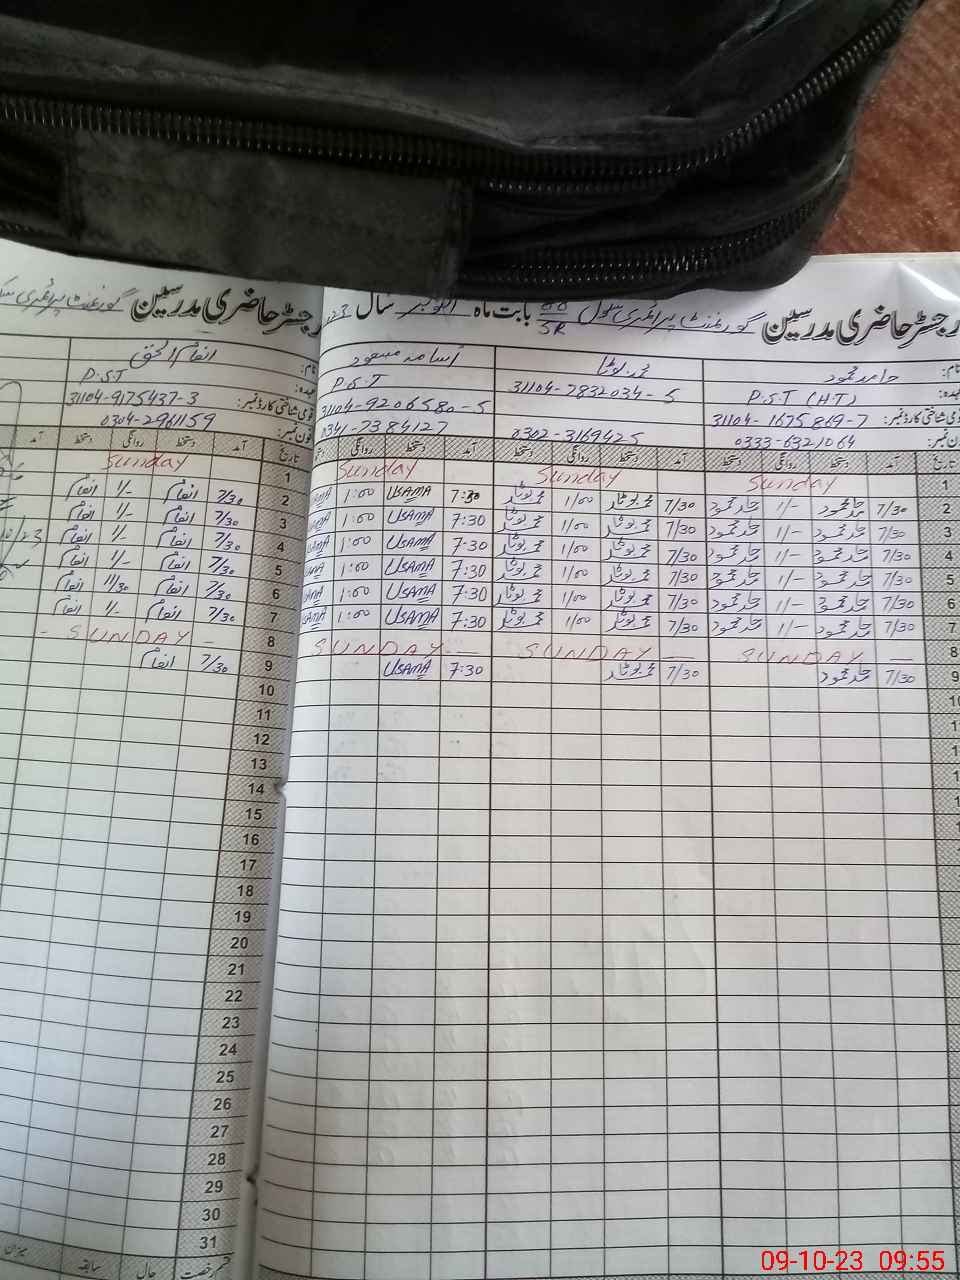 رجسٹر حاضری مدرسین گورنمنٹ پرائمری سکول 88/5R بابت ماہ اکتوبر سال
نام: حامد محمود
P.S.T (H.T)
قومی شناختی کارڈ نمبر: 31104-1675869-7
فون نمبر: 0333-6321064
محمد بوٹا
31104-7832034-5
0302-3169425
اسامہ مسعود
P.S.T
31104-9206580-5
0341-7384127
تاریخ آمد دستخط روانگی دستخط آمد دستخط روانگی دستخط آمد دستخط روانگی
1 Sunday Sunday Sunday
2 7/30 حامد محمود 1/- حامد محمود 7/30 محمد بوٹا 1/00 محمد بوٹا 7:30 USAMA 1:00
3 7/30 حامد محمود 1/- حامد محمود 7/30 محمد بوٹا 1/00 محمد بوٹا 7:30 USAMA 1:00
4 7/30 حامد محمود 1/- حامد محمود 7/30 محمد بوٹا 1/00 محمد بوٹا 7:30 USAMA 1:00
5 7/30 حامد محمود 1/- حامد محمود 7/30 محمد بوٹا 1/00 محمد بوٹا 7:30 USAMA 1:00
6 7/30 حامد محمود 1/- حامد محمود 7/30 محمد بوٹا 1/00 محمد بوٹا 7:30 USAMA 1:00
7 7/30 حامد محمود 1/- حامد محمود 7/30 محمد بوٹا 1/00 محمد بوٹا 7:30 USAMA 1:00
8 SUNDAY SUNDAY SUNDAY
9 7/30 حامد محمود 7/30 محمد بوٹا 7:30 USAMA
رجسٹر حاضری مدرسین گورنمنٹ پرائمری
نام: انعام الحق
عہدہ: P.S.T
قومی شناختی کارڈ نمبر: 31104-9175437-3
فون نمبر: 0304-2961159
تاریخ آمد دستخط روانگی دستخط آمد
1 Sunday
2 7/30 انعام 1/- انعام
3 7/30 انعام 1/- انعام
4 7/30 انعام 1/- انعام
5 7/30 انعام 1/- انعام
6 7/30 انعام 11/30 انعام
7 7/30 انعام 1/- انعام
8 SUNDAY
9 7/30 انعام
10
11
12
13
14
15
16
17
18
19
20
21
22
23
24
25
26
27
28
29
30
31
قسم رخصت حال سابقہ میزان
09-10-23 09:55